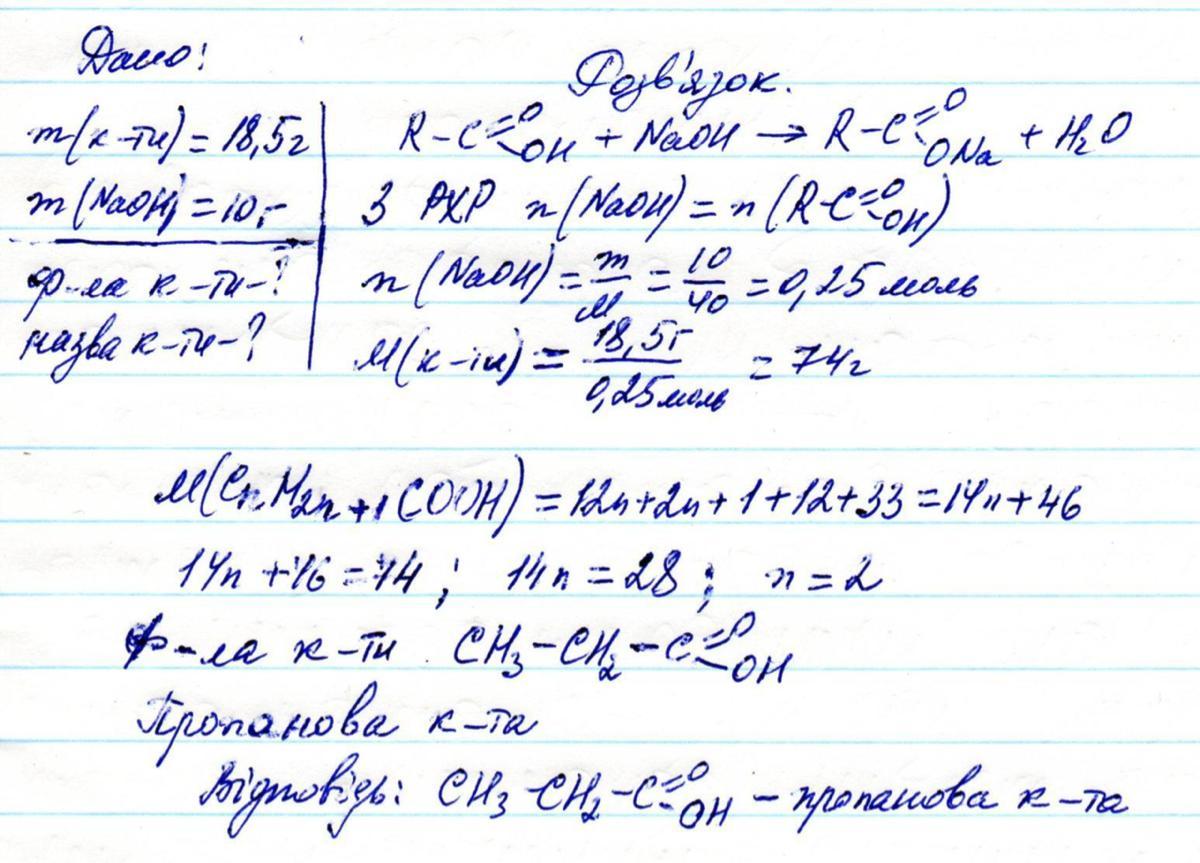 Дано:
m(к-ти) = 18,5г
m(NaOH) = 10г
ф-ла к-ти-?
назва к-ти-?
Розв'язок.
R-C=O-OH + NaOH → R-C=O-ONa + H₂O
З РХР n(NaOH) = n(R-C=O-OH)
n(NaOH) = m/M = 10/40 = 0,25 моль
M(к-ти) = 18,5г/0,25моль = 74г
M(CnH2n+1COOH) = 12n+2n+1+12+33 = 14n+46
14n+46=74; 14n=28; n=2
Ф-ла к-ти CH₃-CH₂-C=O-OH
Пропанова к-та
Відповідь: CH₃-CH₂-C=O-OH - пропанова к-та